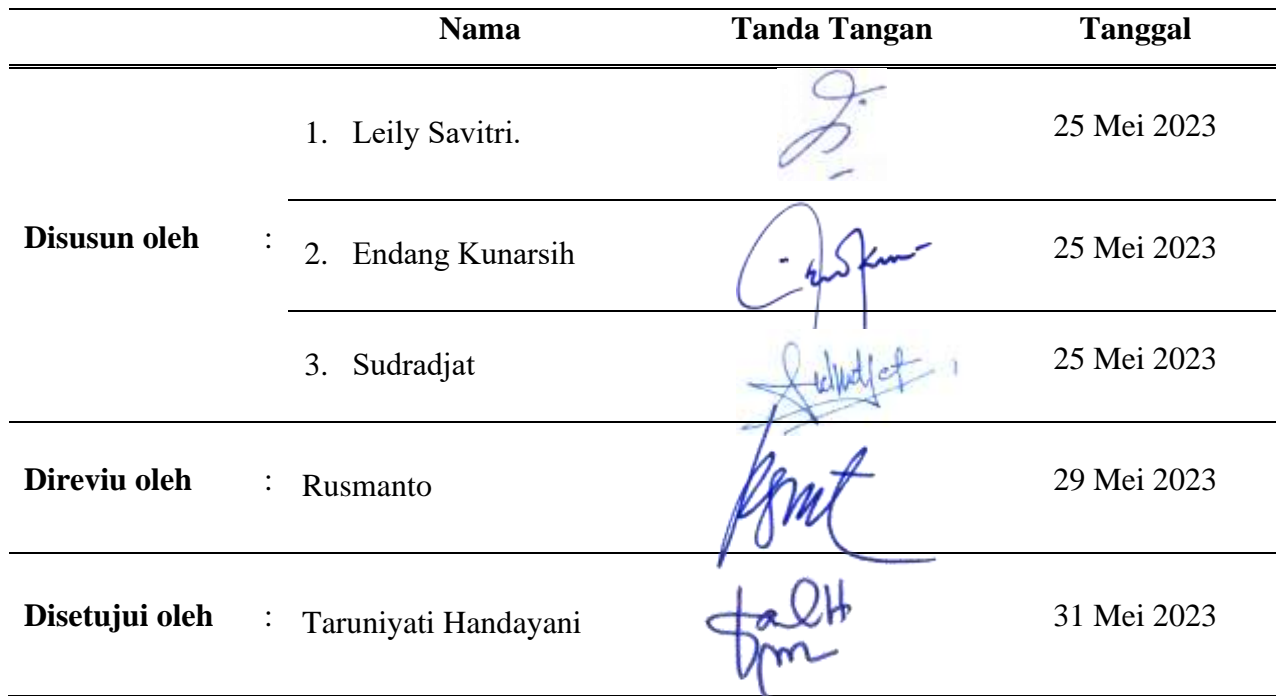 Nama Tanda Tangan Tanggal
1. Leily Savitri. 25 Mei 2023
Disusun oleh : 2. Endang Kunarsih 25 Mei 2023
3. Sudradjat 25 Mei 2023
Direviu oleh : Rusmanto 29 Mei 2023
Disetujui oleh : Taruniyati Handayani 31 Mei 2023